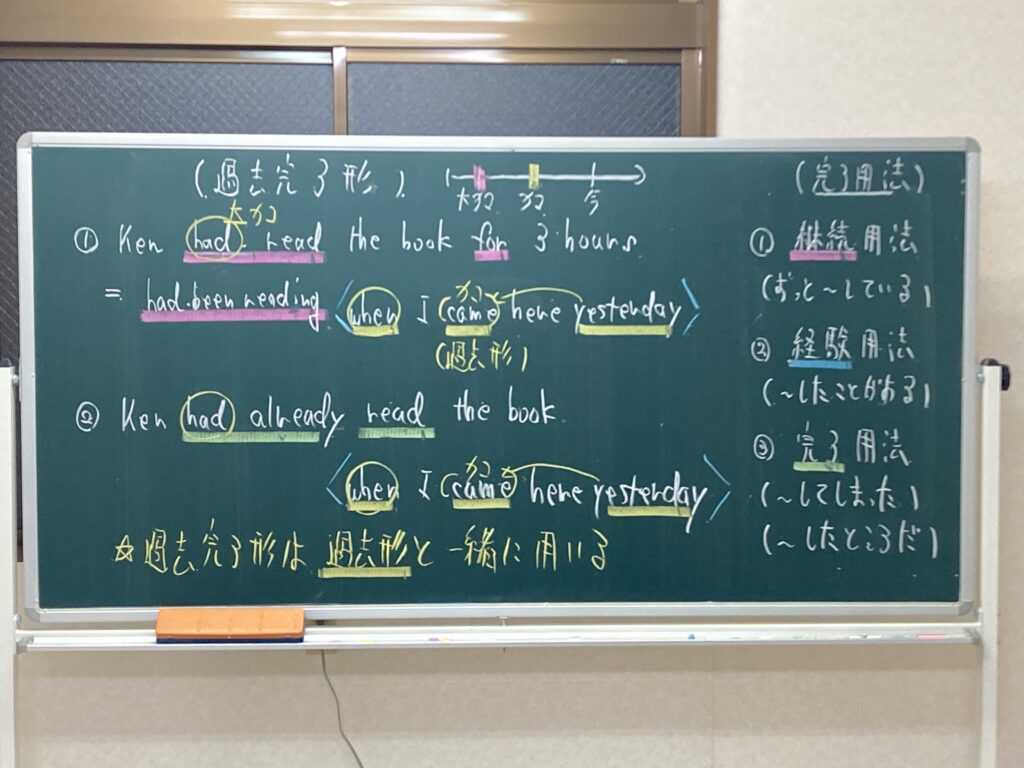 (過去完了形)
大カコ カコ 今
大カコ
① Ken had read the book for 3 hours
= had been reading 〈when I came here yesterday〉
カコ
(過去形)
② Ken had already read the book
カコ
〈when I came here yesterday〉
☆過去完了形は過去形と一緒に用いる
(完了用法)
① 継続用法
(ずっと~している)
② 経験用法
(~したことがある)
③ 完了用法
(~してしまった)
(~したところだ)